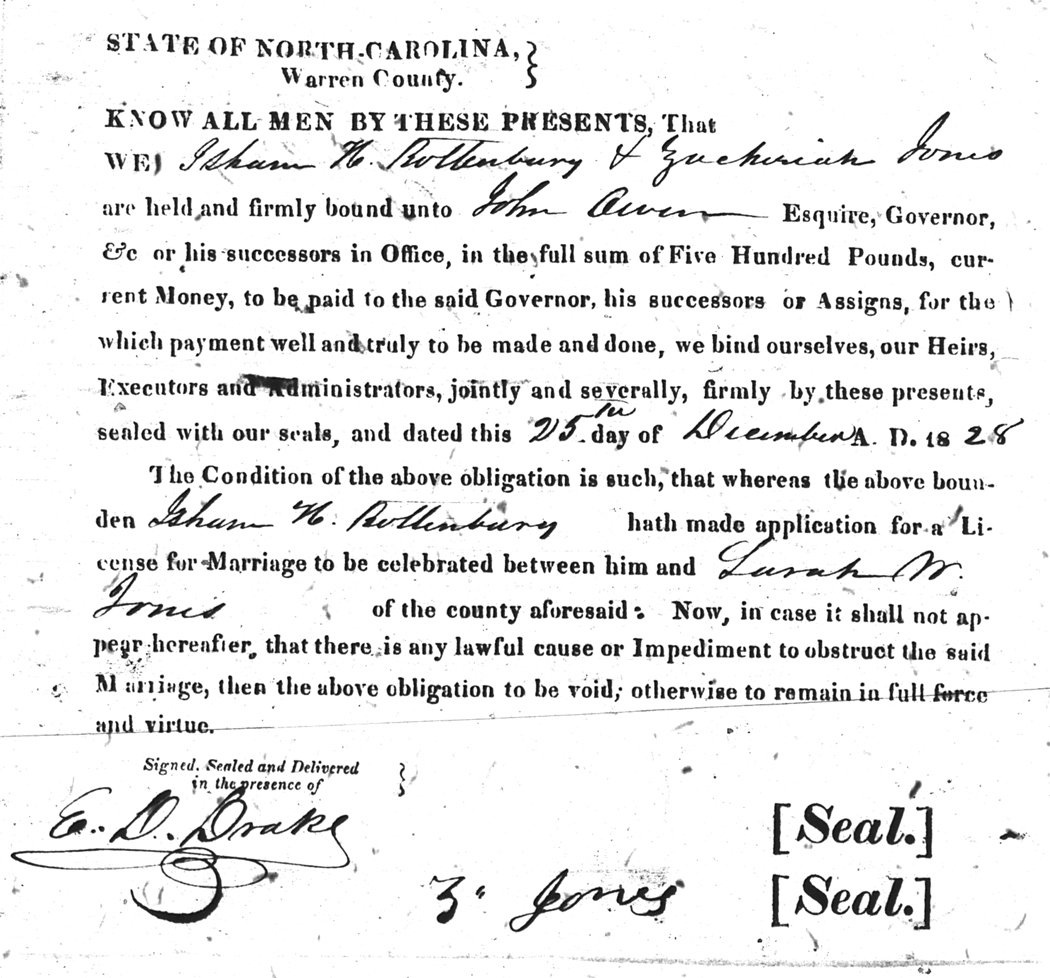 STATE OF NORTH-CAROLINA, }
Warren County. }
KNOW ALL MEN BY THESE PRESENTS, That
WE, Isham H. Rottenbury & Zacheriah Jones
are held and firmly bound unto John Owen Esquire, Governor,
&c or his successors in Office, in the full sum of Five Hundred Pounds, cur-
rent Money, to be paid to the said Governor, his successors or Assigns, for the
which payment well and truly to be made and done, we bind ourselves, our Heirs,
Executors and Administrators, jointly and severally, firmly by these presents,
sealed with our seals, and dated this 25th day of December A. D. 1828
The Condition of the above obligation is such, that whereas the above boun-
den Isham H. Rottenbury hath made application for a Li-
cense for Marriage to be celebrated between him and Sarah W.
Jones of the county aforesaid: Now, in case it shall not ap-
pear hereafter, that there is any lawful cause or Impediment to obstruct the said
Marriage, then the above obligation to be void, otherwise to remain in full force
and virtue.
Signed, Sealed and Delivered }
in the presence of }
E. D. Drake
[Seal.]
Z. Jones [Seal.]